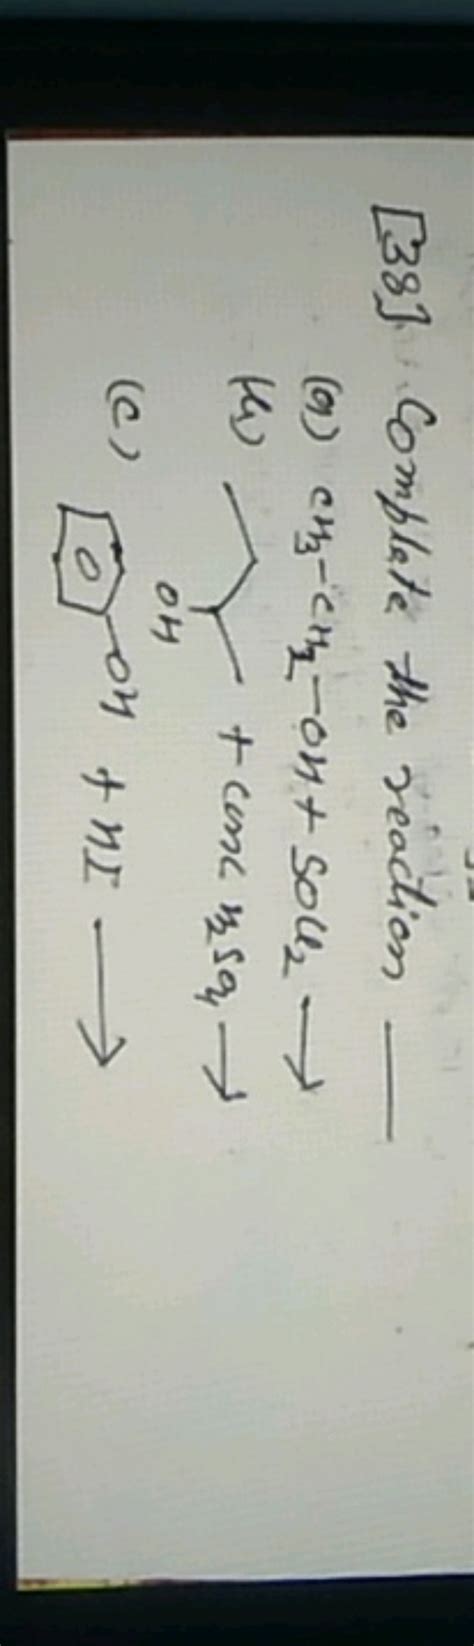 [38] Complate the reaction —
(a) CH3-CH2-OH + SOCl2 →
(b) OH + conc H2SO4 →
(c) O OH + HI →